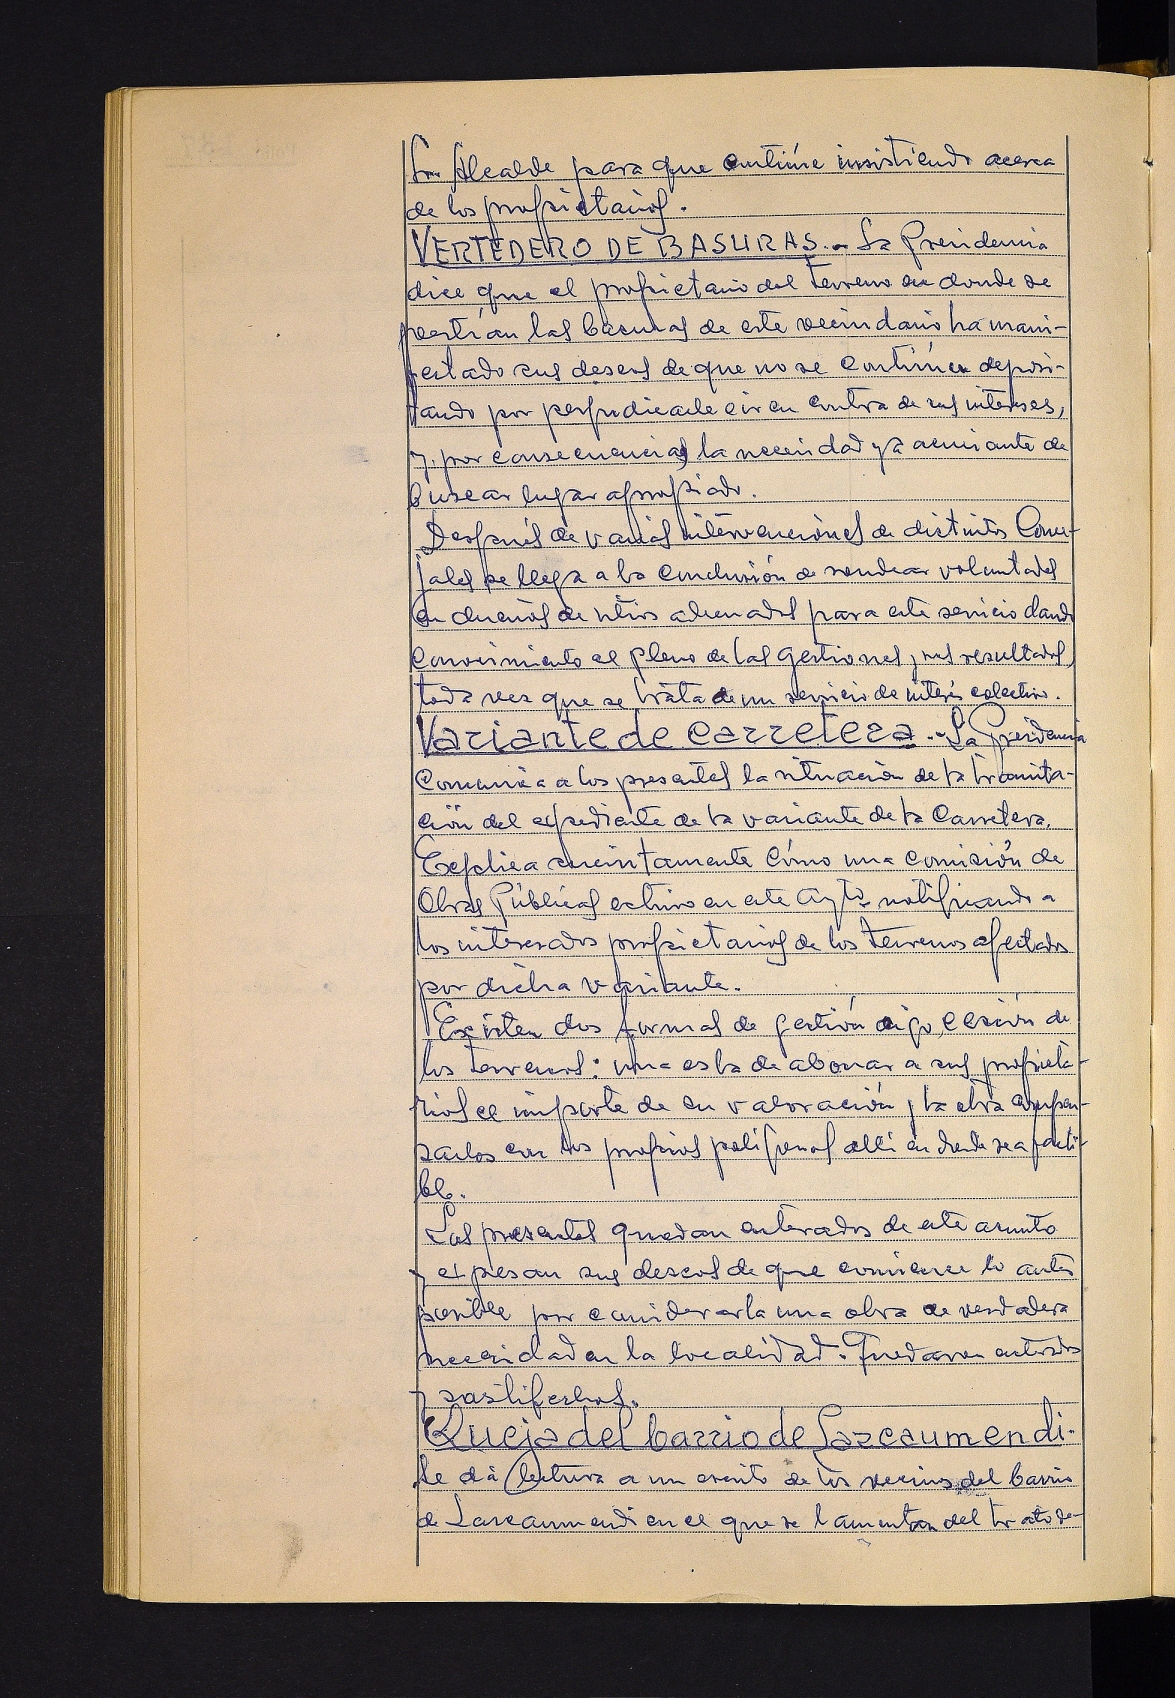 Sr. Alcalde para que continúe insistiendo acerca
de los propietarios.
VERTEDERO DE BASURAS.- La Presidencia
dice que el propietario del terreno en donde se
vertían las basuras de este vecindario ha mani-
festado sus deseos de que no se continúen deposi-
tando por perjudicarle e ir en contra de sus intereses,
y por consecuencia, la necesidad ya acuciante de
buscar lugar apropiado.
Después de varias intervenciones de distintos Conce-
jales se llega a la conclusión de sondear voluntades
en dueños de sitios adecuados para este servicio dando
conocimiento al pleno de las gestiones y sus resultados,
toda vez que se trata de un servicio de interés colectivo.
Variante de carretera.- La Presidencia
comunica a los presentes la situación de la tramita-
ción del expediente de la variante de la Carretera.
Explica sucintamente cómo una comisión de
Obras Públicas estuvo en este Aytº notificando a
los interesados propietarios de los terrenos afectados
por dicha variante.
Existen dos formas de gestión digo, cesión de
los terrenos: una es la de abonar a sus propieta-
rios el importe de su valoración y la otra compen-
sarlos con los propios polígonos allí en donde sea facti-
ble.
Los presentes quedan enterados de este asunto
y expresan sus deseos de que comience lo antes
posible por considerarla una obra de verdadera
necesidad en la localidad. Quedaron enterados
y sastifechos.
Queja del barrio de Lazcaumendi.
Se dá lectura a un escrito de los vecinos del barrio
de Lazcaumendi en el que se lamentan del trato de-